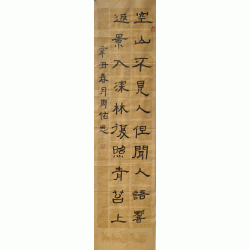 空山不見人但聞人語響
返景入深林復照青苔上
辛丑春月周佑